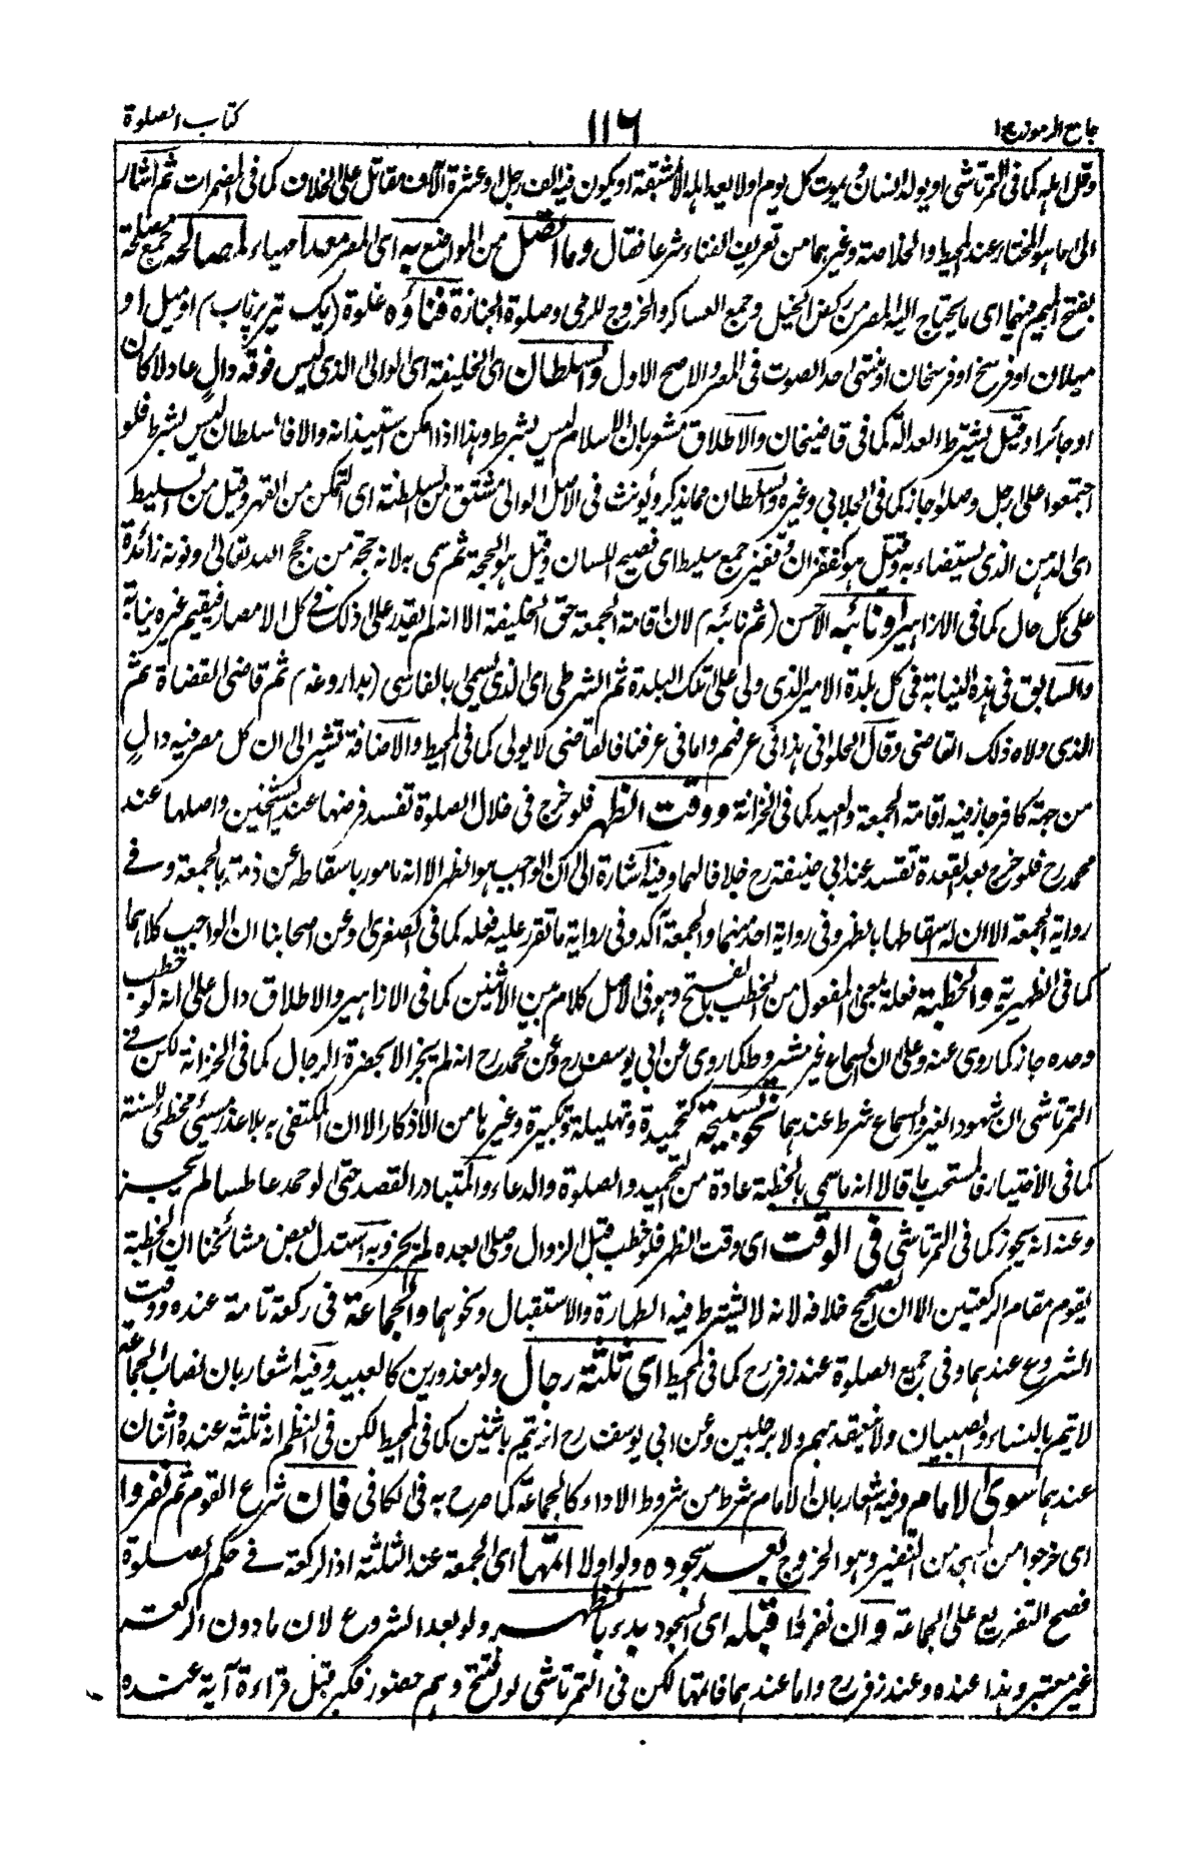 جامع الرموز ج ١
١١٦
كتاب الصلوة
وقل اهله كما فى التمرتاشى او يولد انسان ويموت كل يوم اولا يعد اهله الا بمشقة او يكون فيه الف رجل او عشرة آلاف مقاتل على الخلاف كما فى المضمرات ثم اشار
الى ما هو المختار عند المحيط والخلاصة وغيرهما من تعريف الفناء شرعا فقال وما اتصل من المواضع به اى المصر معدا مهياء لمصالحه جمع مصلحة
بفتح الميم فيهما اى ما يحتاج اليه المصر من ركض الخيل وجمع العساكر والخروج للرمى وصلوة الجنازة فناؤه غلوة (يك تير پرتاب) او ميل او
ميلان او فرسخ او فرسخان او منتهى حد الصوت فى المصر والاصح الاول والسلطان اى الخليفة اى الوالى الذى ليس فوقه والٍ عادلا كان
او جائرا وقيل يشترط العدالة كما فى قاضيخان والاطلاق مشعر بان الاسلام ليس بشرط وهذا اذا امكن استيذانه والا فالسلطان ليس بشرط فلو
اجتمعوا على رجل وصلوا جاز كما فى الجلابى وغيره والسلطان مما يذكر ويؤنث فى الاصل الوالى مشتق من السلطنة اى التمكن من القهر وقيل من السليط
اى الدهن الذى يستضاء به وقيل هو كقفزان وقفيز جمع سليط اى فصيح اللسان وقيل هو الحجة ثم سمى به لانه حجة من حجج الله تعالى ونونه زائدة
على كل حال كما فى الازاهير او نائبه الاحسن (ثم نائبه) لان اقامة الجمعة حق الخليفة الا انه لم يقدر على ذلك فى كل الامصار فيقيم غيره نيابة
والسابق فى هذه النيابة فى كل بلدة الامير الذى ولى على تلك البلدة ثم الشرطى اى الذى يسمى بالفارسى (بداروغه) ثم قاضى القضاة ثم
الذى ولاه ذلك القاضى وقال الحلوانى هذا فى عرفهم واما فى عرفنا فالقاضى لا يولى كما فى المحيط والاضافة تشير الى ان كل مصر فيه والٍ
من جهة كافر جاز فيه اقامة الجمعة والعيد كما فى الخزانة ووقت الظهر فلو خرج فى خلال الصلوة تفسد فرضها عند الشيخين واصلها عند
محمد رح فلو خرج بعد القعدة تفسد عند ابى حنيفة رح خلافا لهما وفيه اشارة الى ان الواجب هو الظهر الا انه مامور باسقاطه عن ذمته بالجمعة وفى
رواية الجمعة الا ان له اسقاطها بالظهر وفى رواية احد منهما والجمعة آكد وفى رواية ما تقرر عليه فعله كما فى الصغرى وعن اصحابنا ان الواجب كلاهما
كما فى الظهيرية والخطبة فعلة بمعنى المفعول من الخطب بالفتح وهو فى الاصل كلام بين الاثنين كما فى الازاهير والاطلاق دال على انه لو خطب
وحده جاز كما روى عنه وعلى ان السماع غير مشروط كما روى عن ابى يوسف رح وعن محمد رح انه لم يجز الا بحضرة الرجال كما فى الخزانة لكن فى
التمرتاشى ان شهود الغير والسماع شرط عندهما نحو تسبيحة كتحميدة وتهليلة وتكبيرة وغيرها من الاذكار الا ان المكتفى به بلا عذر مسيئ مخطئ السنة
كما فى الاختيار فالمستحب ما قالا انه ما سمى بالخطبة عادة من التحميد والصلوة والدعاء والمتبادر القصد حتى لو حمد عاطسا لم يجز
وعنه انه يجوز كما فى التمرتاشى فى الوقت اى وقت الظهر فلو خطب قبل الزوال وصلى بعده لم يجز وبه استدل بعض مشائخنا ان الخطبة
يقوم مقام الركعتين الا ان الصحيح خلافه لانه لا يشترط فيه الطهارة والاستقبال ونحوهما والجماعة فى ركعة تامة عنده ووقت
الشروع عندهما وفى جميع الصلوة عند زفر رح كما فى المحيط اى ثلثة رجال ولو معذورين كالعبيد وفيه اشعار بان نصاب الجماعة
لا يتم بالنساء والصبيان ولا ينعقد بهم ولا برجلين وعن ابى يوسف رح انه تتم باثنين كما فى المحيط لكن فى النظم انه ثلثة عنده واثنان
عندهما سوى الامام وفيه اشعار بان الامام شرط من شروط الاداء كالجماعة كما صرح به فى الكافى فان شرع القوم ثم نفروا
اى خرجوا من المسجد من النفير وهو الخروج بعد سجوده ولو اولا اتمها اى الجمعة عند الثلثة اذ الركعة فى حكم الصلوة
فصح التفريع على الجماعة وان نفروا قبله اى السجود بدء بالظهر ولو بعد الشروع لان ما دون الركعة
غير معتبر وهذا عنده وعند زفر رح واما عندهما فاتمها لكن فى التمرتاشى لو افتتح وهم حضور فكبر قبل قراءة آية عنده